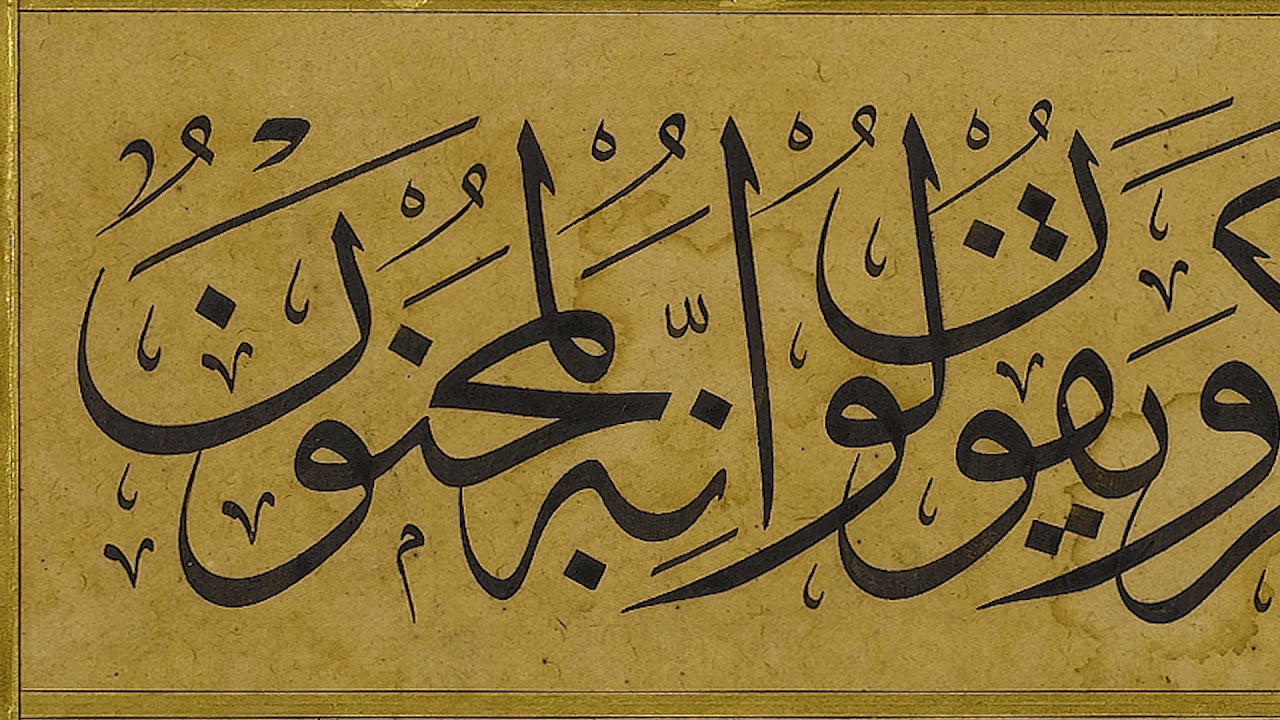 كْرَ وَيَقُولُونَ اِنَّهُ لَمَجْنُونٌ